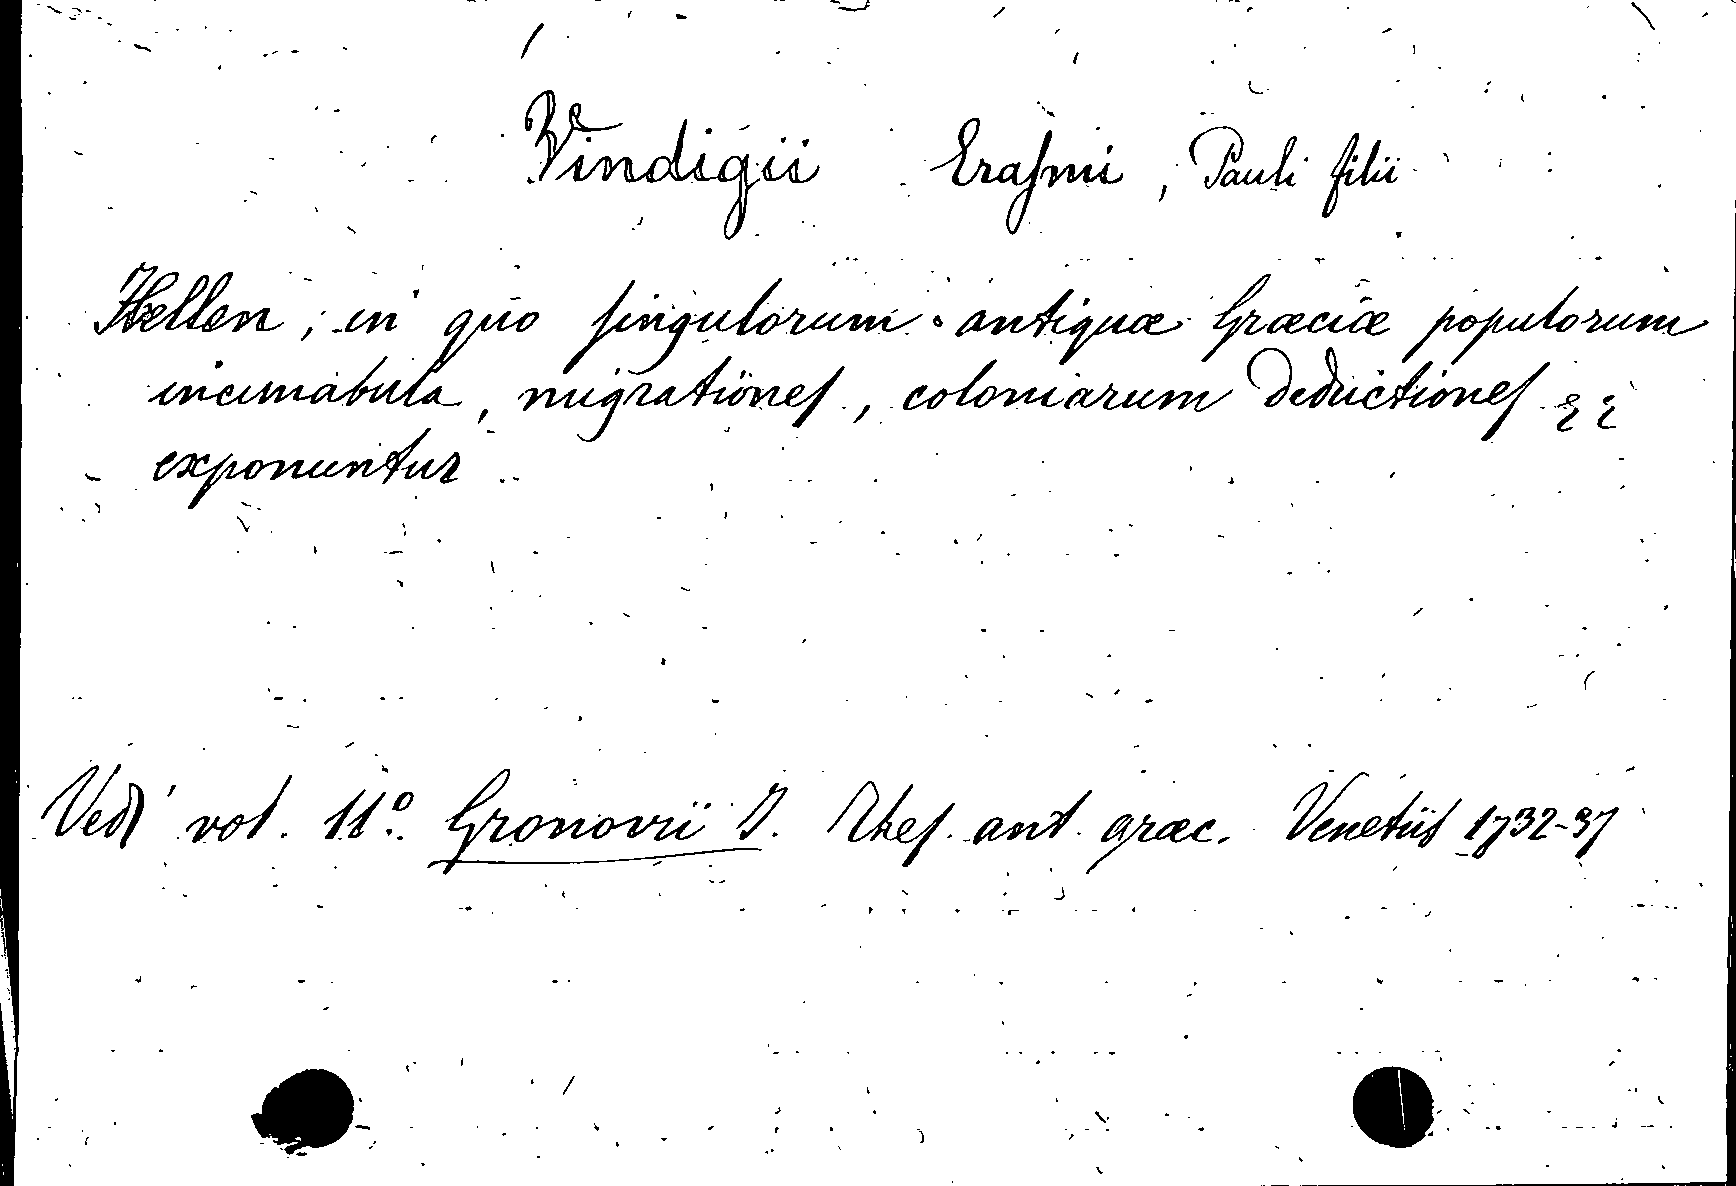 Vindigii Erasmi, Pauli filii
Hellen, in quo singulorum antiquæ Græciæ populorum
incunabula, migrationes, coloniarum deductiones &&
exponuntur
Vedi vol. 11º. Gronovii J. Thes. ant. græc. Venetiis 1732-37